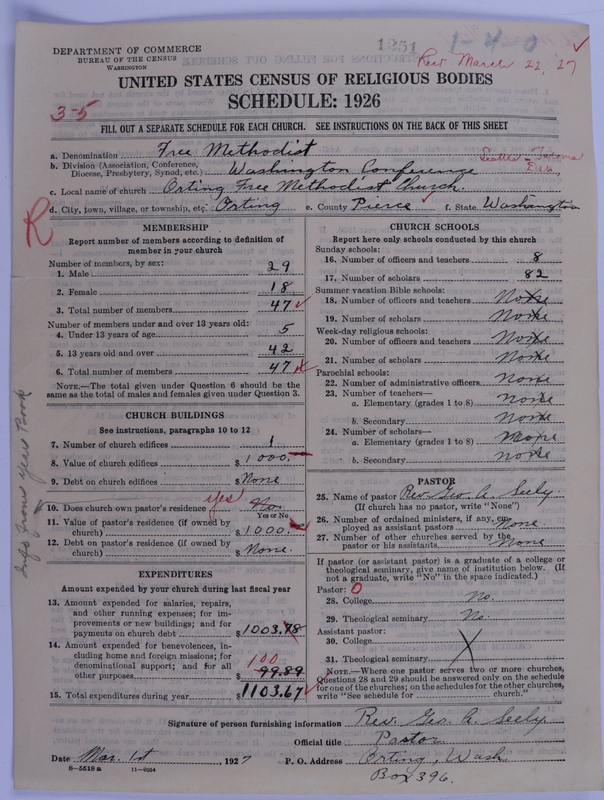 DEPARTMENT OF COMMERCE
BUREAU OF THE CENSUS
WASHINGTON
1251
1-4-0
Rec March 22, '27
UNITED STATES CENSUS OF RELIGIOUS BODIES
SCHEDULE: 1926
3-5
FILL OUT A SEPARATE SCHEDULE FOR EACH CHURCH. SEE INSTRUCTIONS ON THE BACK OF THIS SHEET
a. Denomination Free Methodist
b. Division (Association, Conference, Diocese, Presbytery, Synod, etc.) Washington Conference
Seattle - Tacoma Dis.
c. Local name of church Orting Free Methodist Church.
d. City, town, village, or township, etc. Orting e. County Pierce f. State Washington
R
MEMBERSHIP
Report number of members according to definition of
member in your church
Number of members, by sex:
1. Male 29
2. Female 18
3. Total number of members 47
Number of members under and over 13 years old:
4. Under 13 years of age 5
5. 13 years old and over 42
6. Total number of members 47
NOTE.—The total given under Question 6 should be
the same as the total of males and females given under Question 3.
CHURCH BUILDINGS
See instructions, paragraphs 10 to 12
7. Number of church edifices 1
8. Value of church edifices $ 1000.
9. Debt on church edifices $ None
10. Does church own pastor's residence No. yes
Yes or No
11. Value of pastor's residence (if owned by
church) $ 1000.
12. Debt on pastor's residence (if owned by
church) $ None.
Info from Year Book
EXPENDITURES
Amount expended by your church during last fiscal year
13. Amount expended for salaries, repairs,
and other running expenses; for im-
provements or new buildings; and for
payments on church debt $ 1003.78
14. Amount expended for benevolences, in-
cluding home and foreign missions; for
denominational support; and for all
other purposes $ 99.89
100
15. Total expenditures during year $ 1103.67
CHURCH SCHOOLS
Report here only schools conducted by this church
Sunday schools:
16. Number of officers and teachers 8
17. Number of scholars 82
Summer vacation Bible schools:
18. Number of officers and teachers None
19. Number of scholars None
Week-day religious schools:
20. Number of officers and teachers None
21. Number of scholars None
Parochial schools:
22. Number of administrative officers none
23. Number of teachers—
a. Elementary (grades 1 to 8) none
b. Secondary none
24. Number of scholars—
a. Elementary (grades 1 to 8) none
b. Secondary none
PASTOR
25. Name of pastor Rev. Geo. A. Seely
(If church has no pastor, write "None")
26. Number of ordained ministers, if any, em-
ployed as assistant pastors none
27. Number of other churches served by the
pastor or his assistants None
If pastor (or assistant pastor) is a graduate of a college or
theological seminary, give name of institution below. (If
not a graduate, write "No" in the space indicated.)
Pastor: 0
28. College No.
29. Theological seminary No.
Assistant pastor:
30. College
31. Theological seminary X
NOTE.—Where one pastor serves two or more churches,
Questions 28 and 29 should be answered only on the schedule
for one of the churches; on the schedules for the other churches,
write "See schedule for church."
Signature of person furnishing information Rev. Geo. A. Seely
Official title Pastor
Date Mar. 1st, 1927 P. O. Address Orting, Wash
Box 396.
8—5518 a 11—9064